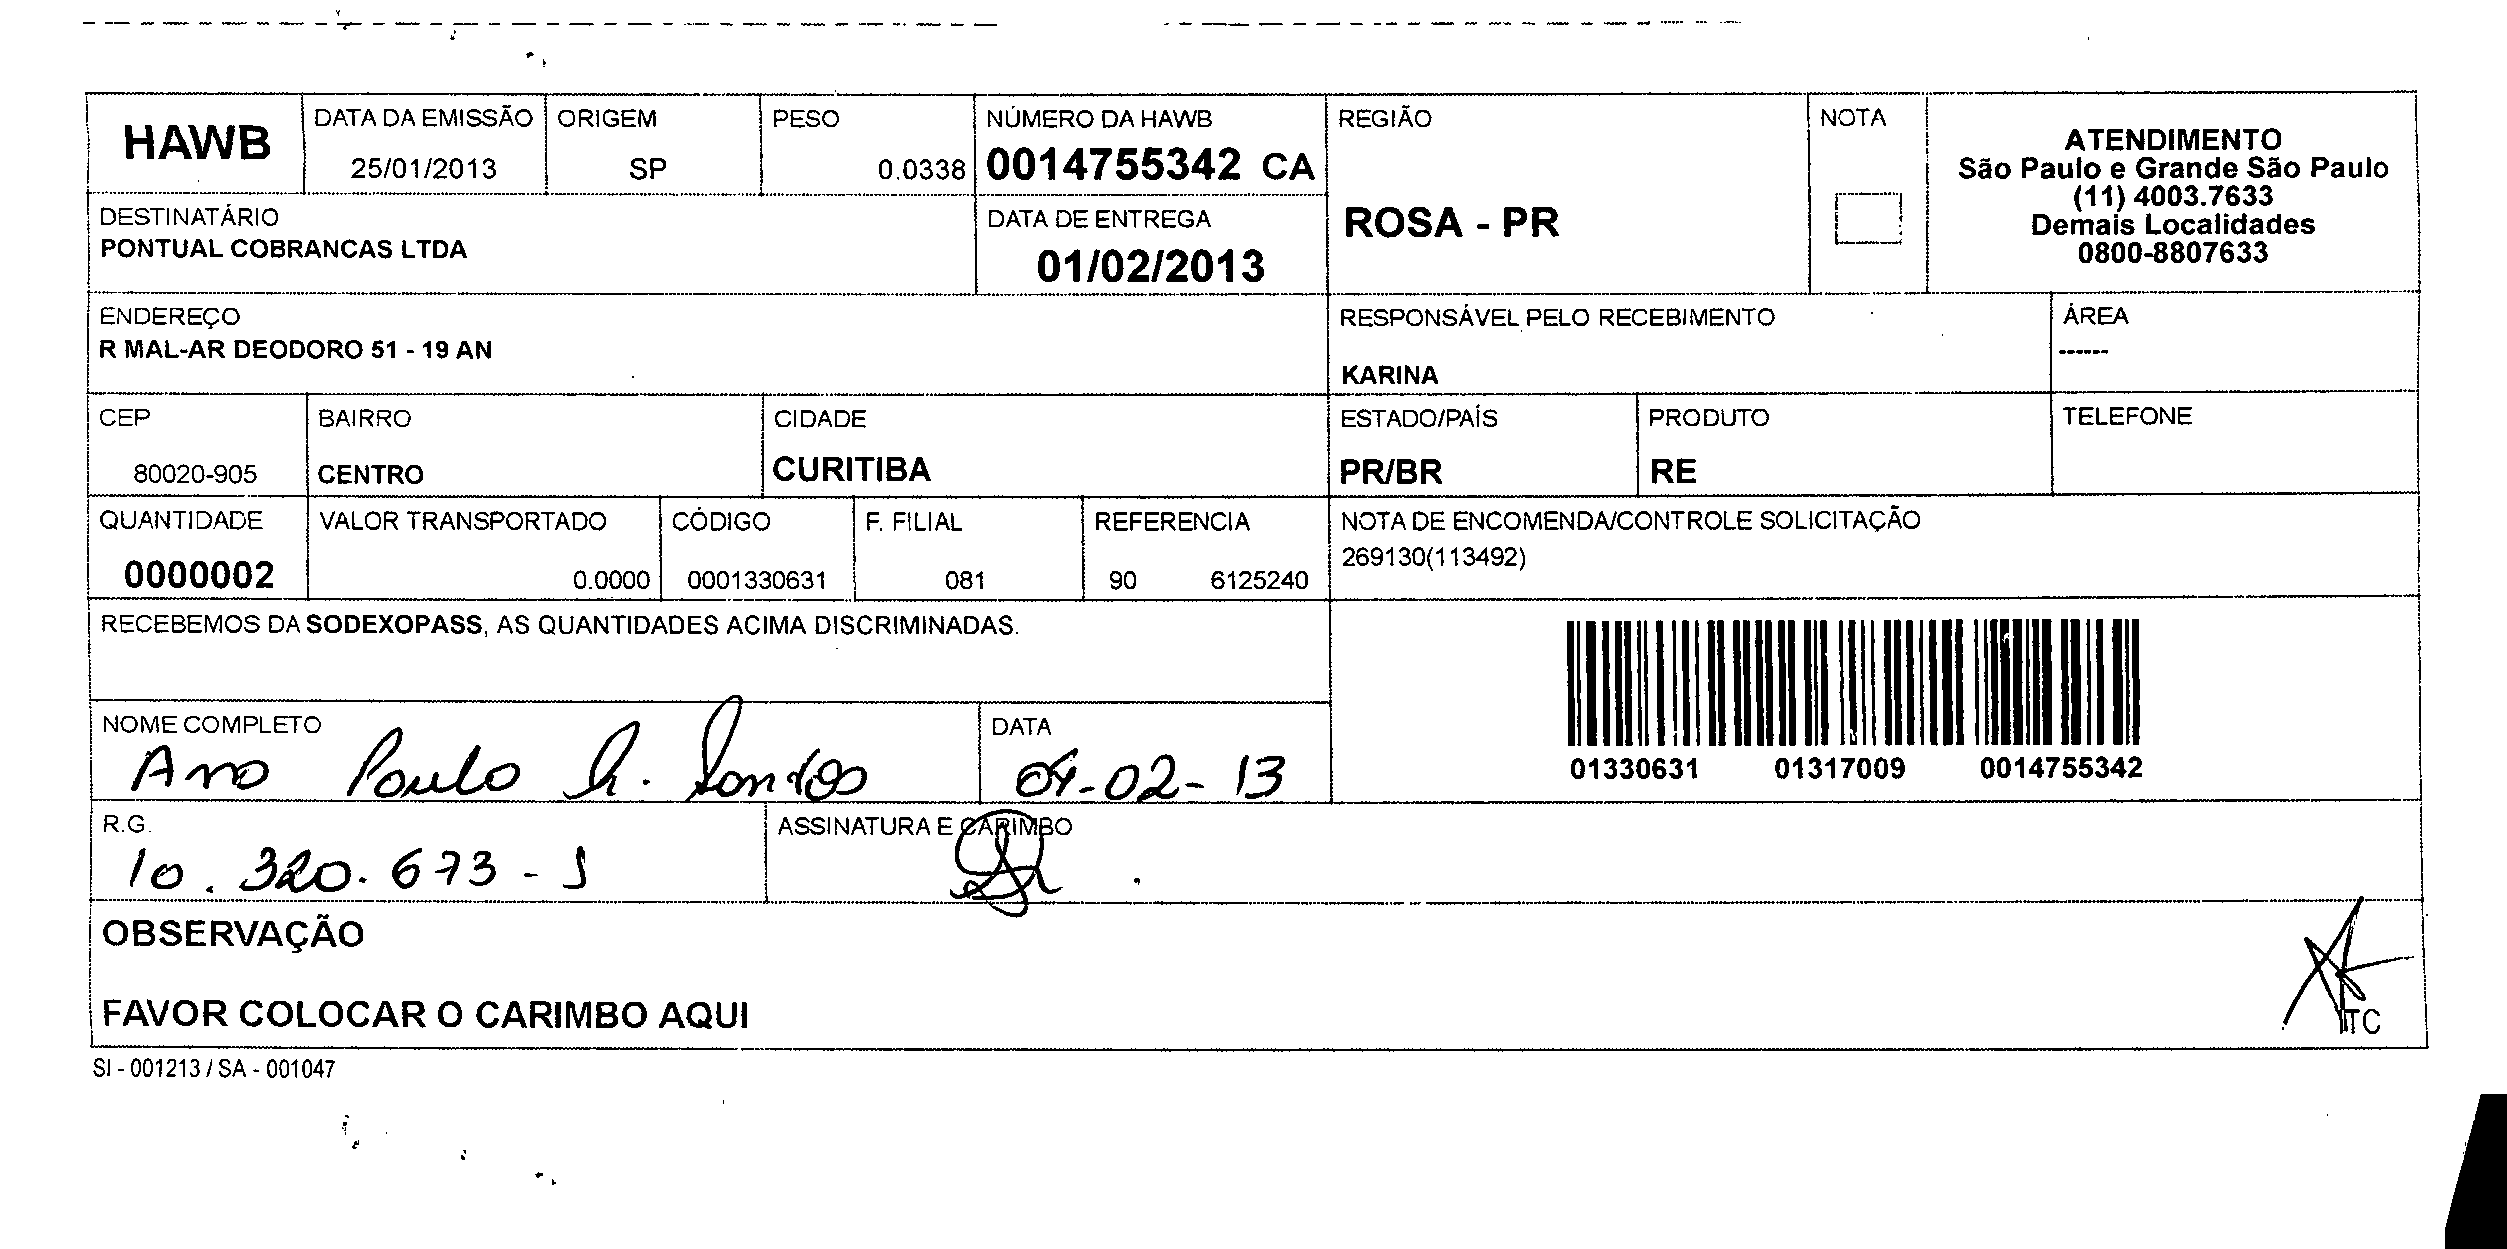 HAWB
DATA DA EMISSÃO
25/01/2013
ORIGEM
SP
PESO
0.0338
NÚMERO DA HAWB
0014755342 CA
REGIÃO
ROSA - PR
NOTA
ATENDIMENTO
São Paulo e Grande São Paulo
(11) 4003.7633
Demais Localidades
0800-8807633
DESTINATÁRIO
PONTUAL COBRANCAS LTDA
DATA DE ENTREGA
01/02/2013
ENDEREÇO
R MAL-AR DEODORO 51 - 19 AN
RESPONSÁVEL PELO RECEBIMENTO
KARINA
ÁREA
------
CEP
80020-905
BAIRRO
CENTRO
CIDADE
CURITIBA
ESTADO/PAÍS
PR/BR
PRODUTO
RE
TELEFONE
QUANTIDADE
0000002
VALOR TRANSPORTADO
0.0000
CÓDIGO
0001330631
F. FILIAL
081
REFERENCIA
90 6125240
NOTA DE ENCOMENDA/CONTROLE SOLICITAÇÃO
269130(113492)
RECEBEMOS DA SODEXOPASS, AS QUANTIDADES ACIMA DISCRIMINADAS.
01330631 01317009 0014755342
NOME COMPLETO
Ana Paula R. Santos
DATA
04-02-13
R.G.
10.320.673-
ASSINATURA E CARIMBO
OBSERVAÇÃO
FAVOR COLOCAR O CARIMBO AQUI
TC
SI - 001213 / SA - 001047